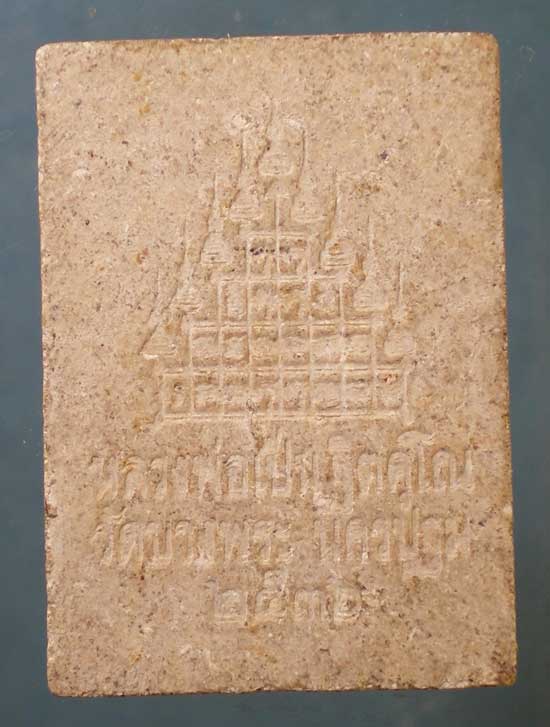 หลวงพ่อเปิ่น ฐิตคุโณ
วัดบางพระ นครปฐม
๒๕๓๖